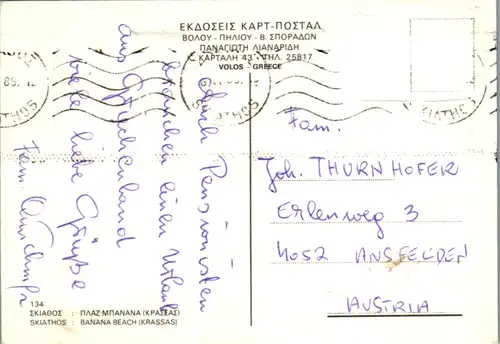 ΕΚΔΟΣΕΙΣ ΚΑΡΤ-ΠΟΣΤΑΛ
ΒΟΛΟΥ - ΠΗΛΙΟΥ - Β. ΣΠΟΡΑΔΩΝ
ΠΑΝΑΓΙΩΤΗ ΛΙΑΝΑΡΙΔΗ
Κ. ΚΑΡΤΑΛΗ 43 - ΤΗΛ. 25817
VOLOS - GREECE
Auch Pensionisten
brauchen einen Urlaub
aus Griechenland
viele liebe Grüße
Fam.
Fam.
Joh. THURNHOFER
Erlenweg 3
4052 ANSFELDEN
AUSTRIA
134
ΣΚΙΑΘΟΣ : ΠΛΑΖ ΜΠΑΝΑΝΑ (ΚΡΑΣΣΑΣ)
SKIATHOS : BANANA BEACH (KRASSAS)